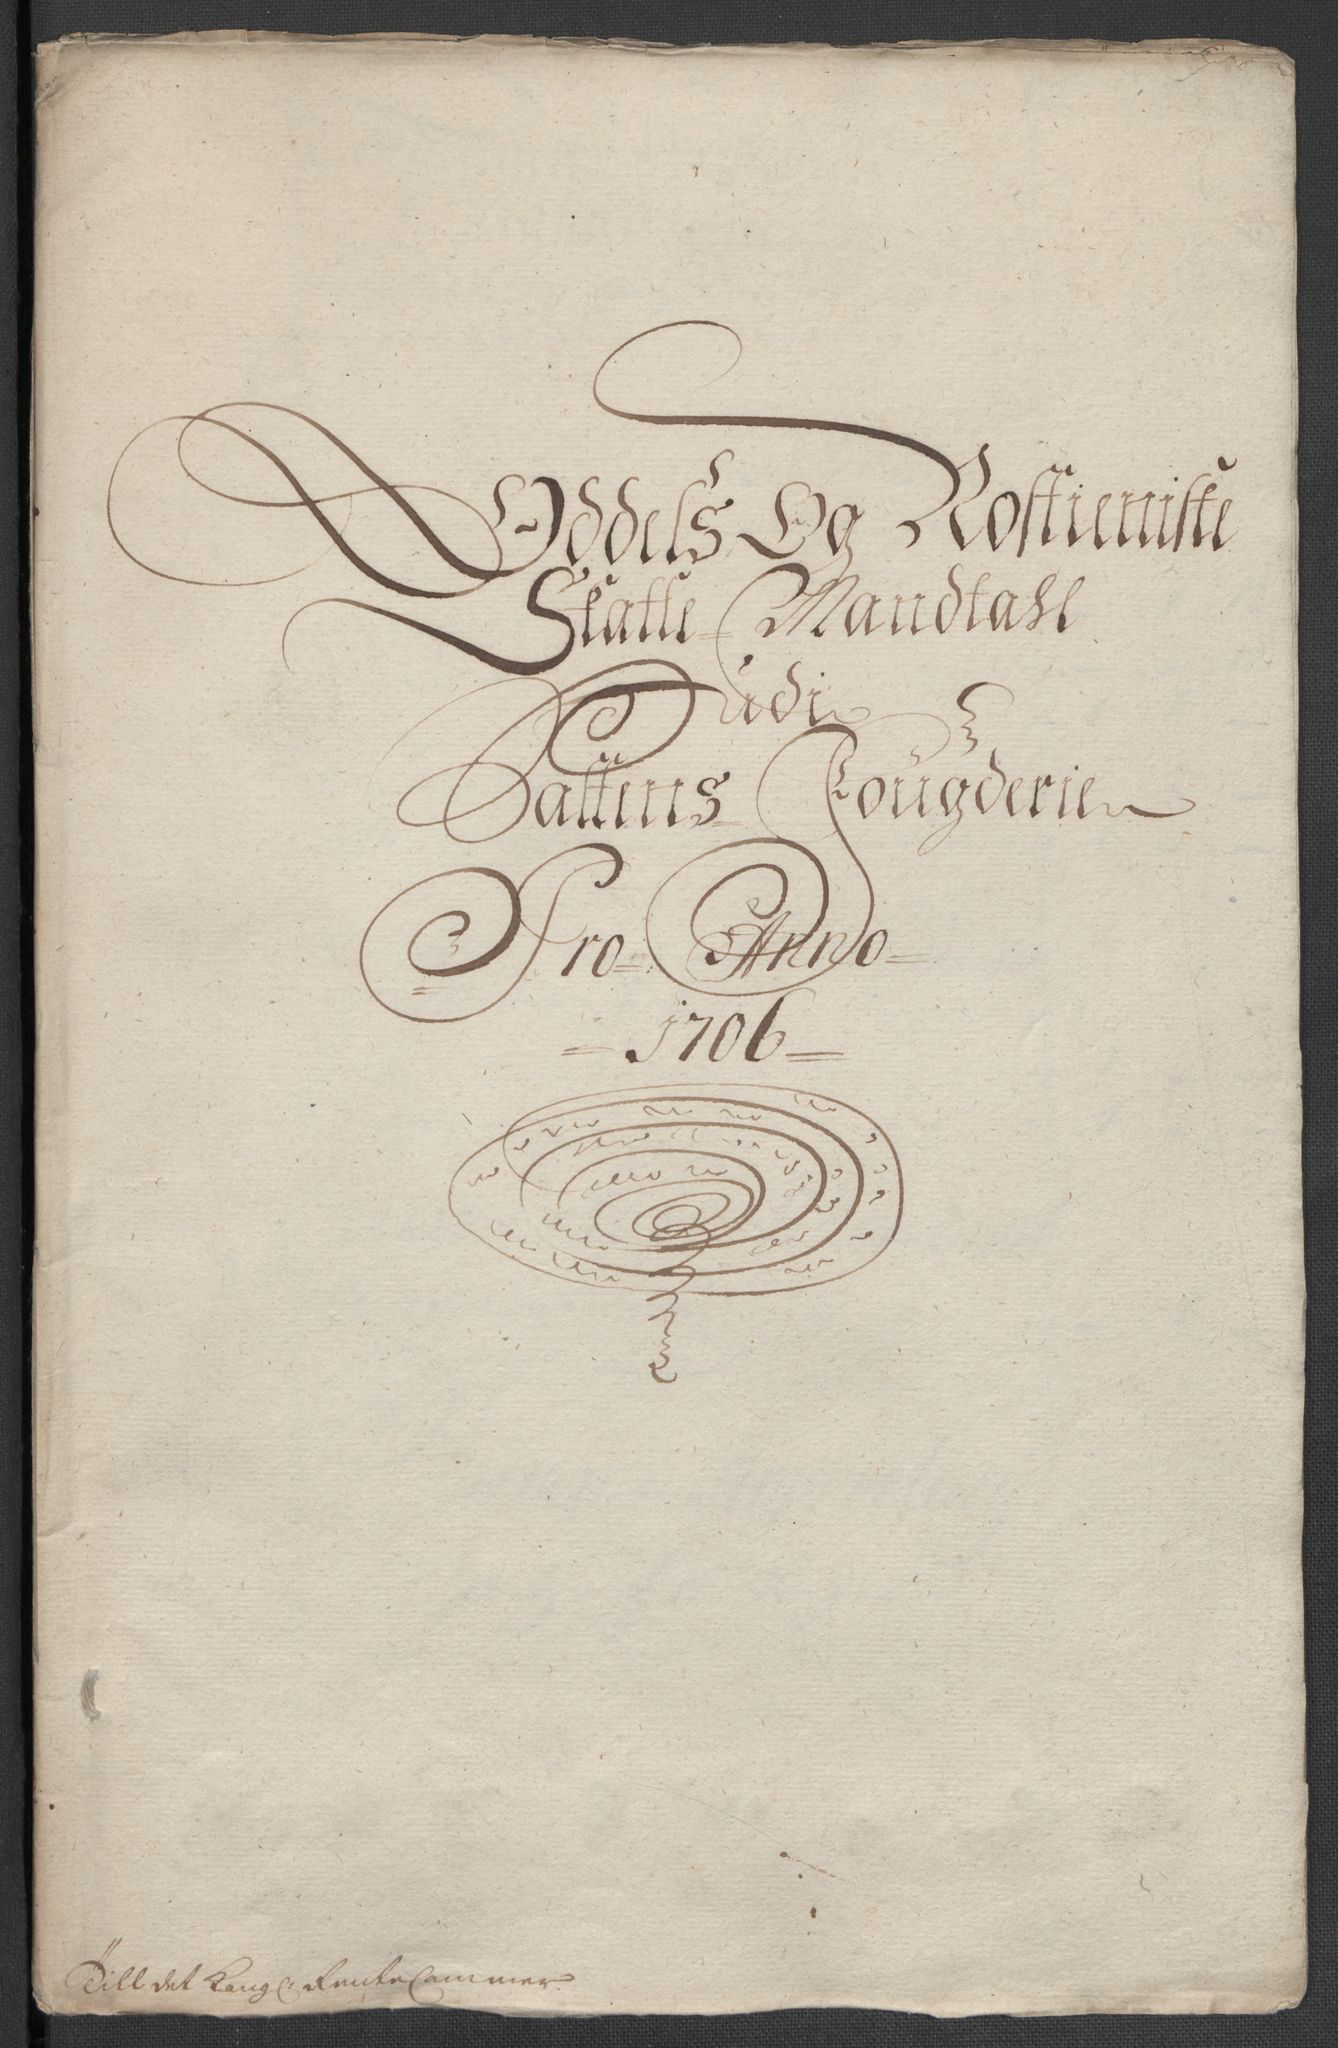 Oddels Og Rostieniste
Skatte Mandtahl
udi
Saltens Fougderie
Pro Anno
1706
Till det Kongl: Rente Cammer